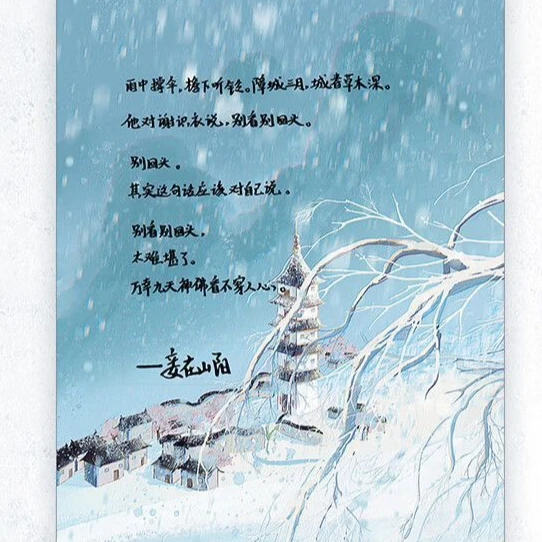 雨中撑伞,檐下听铃。障城三月,城春草木深。
他对谢识衣说,别看别回头。
别回头。
其实这句话应该对自己说。
别看别回头,
太难堪了。
万幸九天神佛看不穿人心。
—妾在山阳